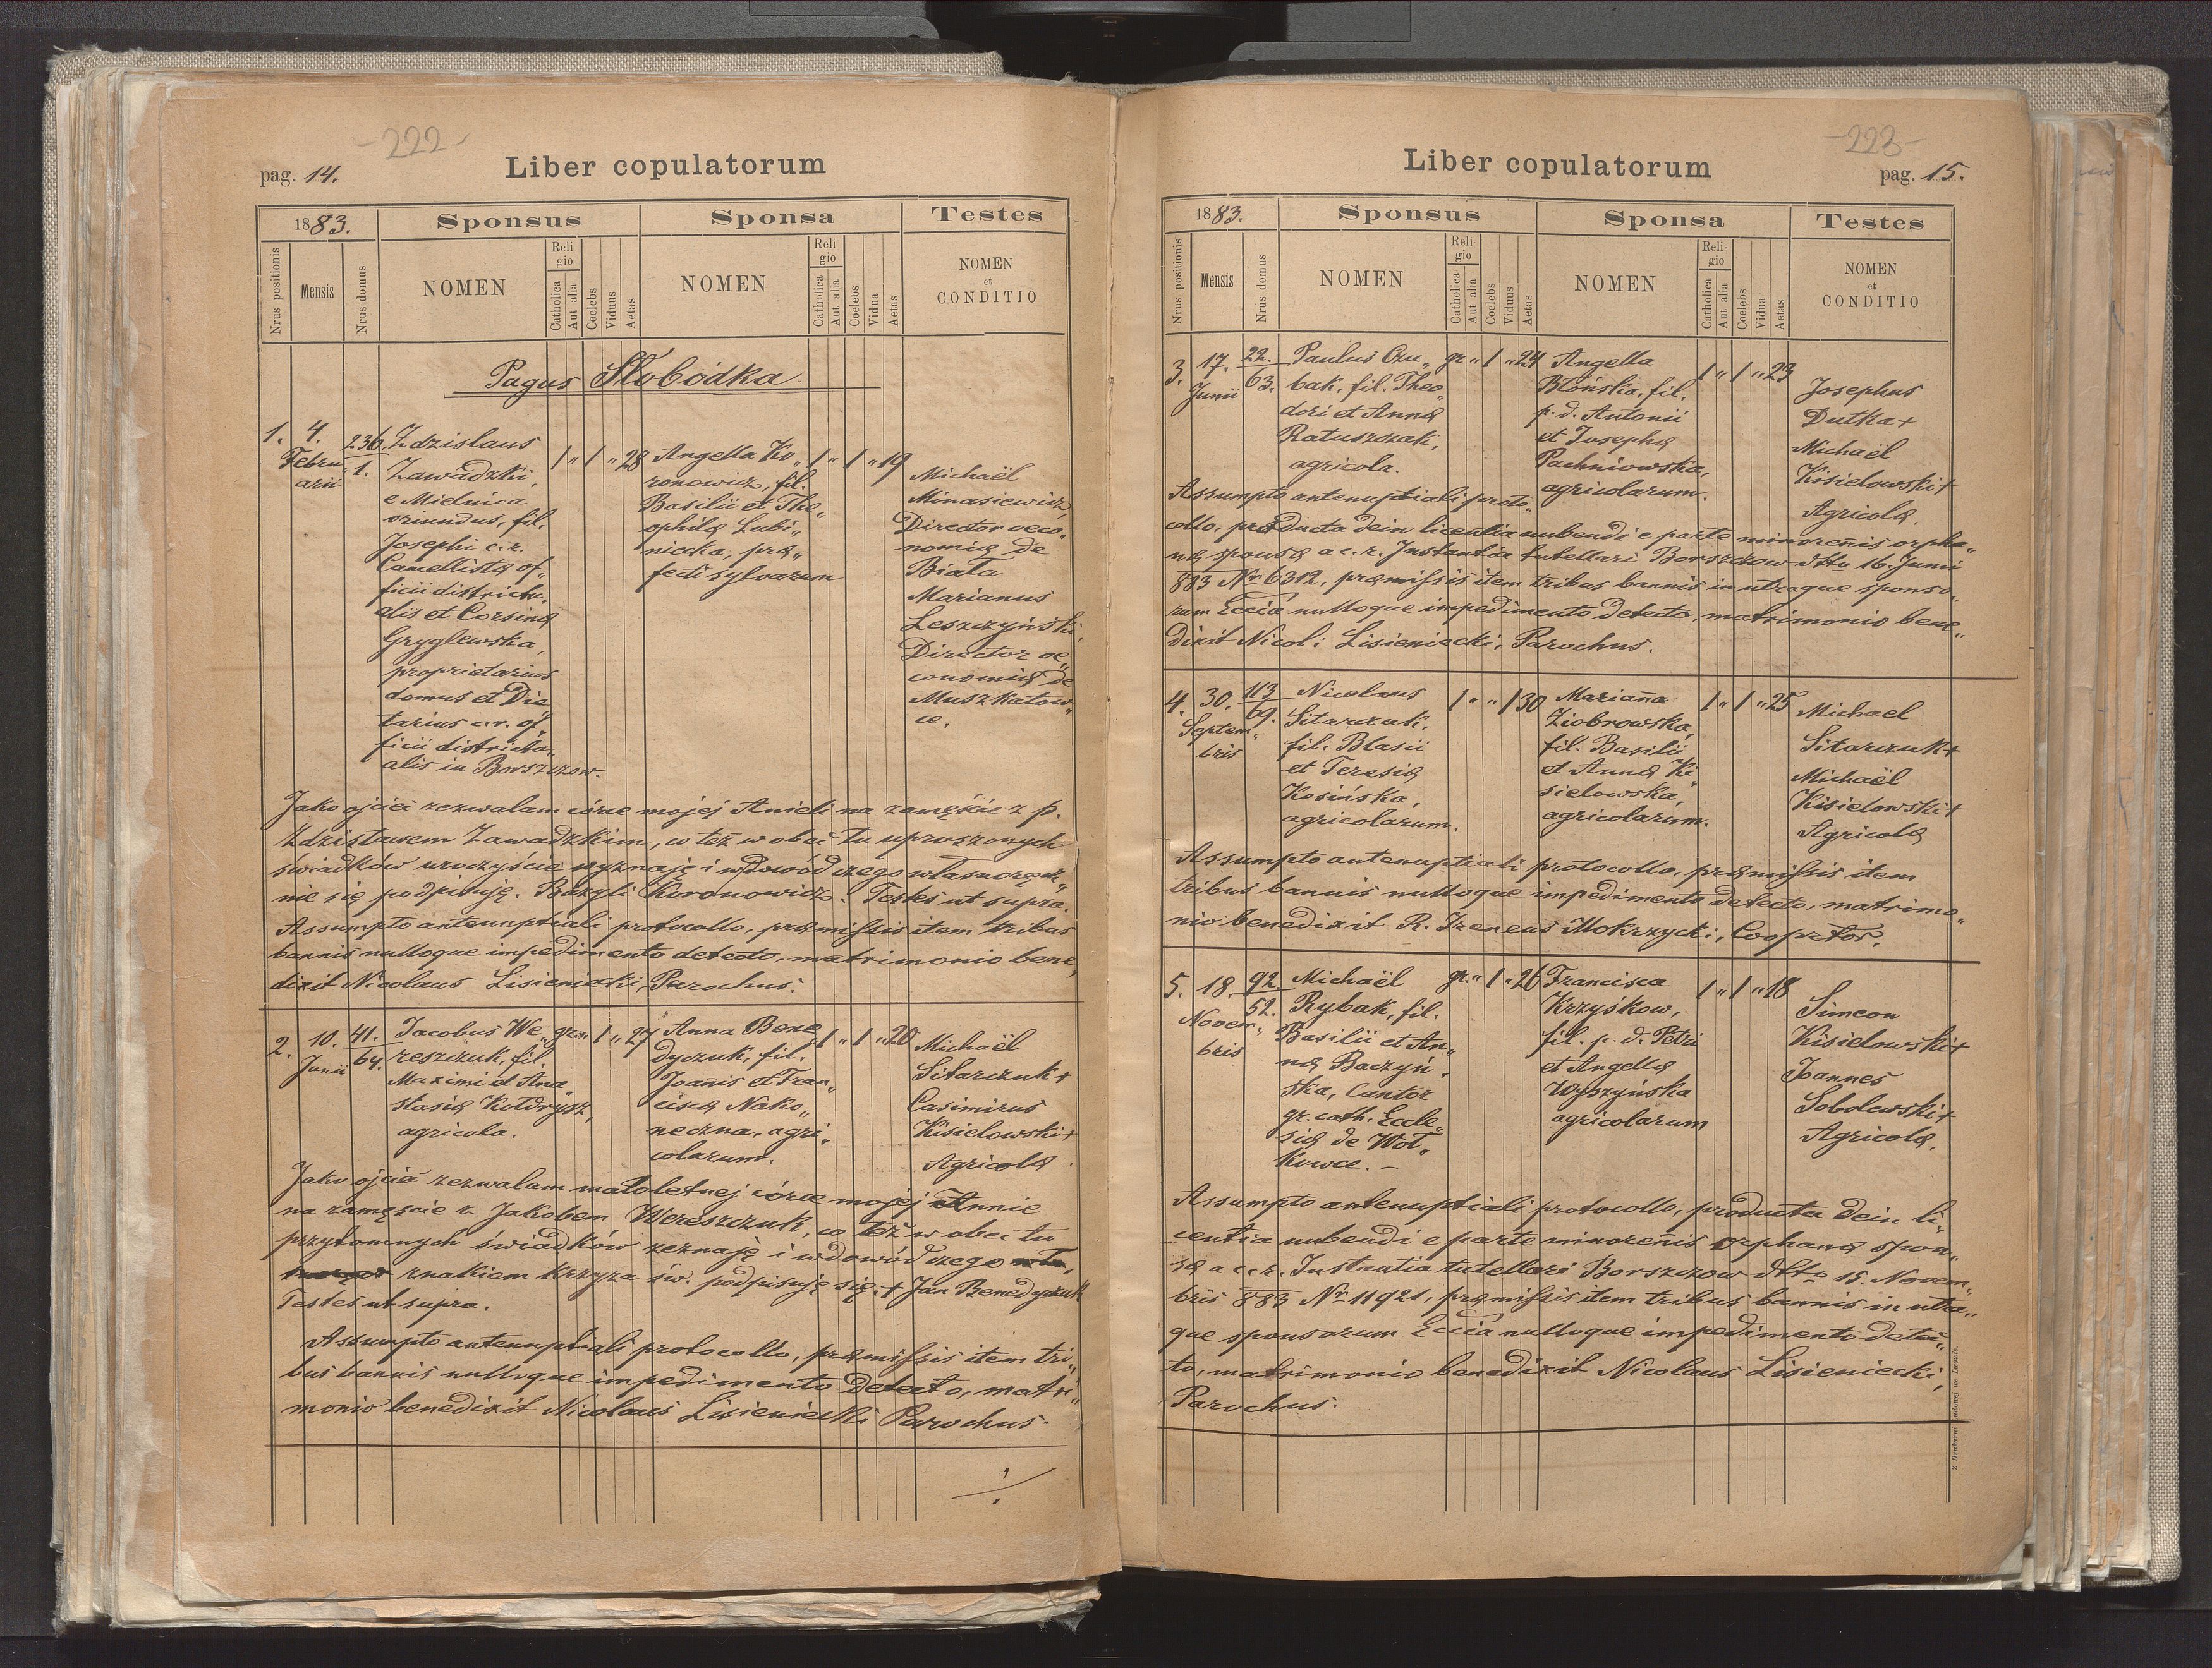 -222-
pag. 14.
Liber copulatorum
1883.
Sponsus
Sponsa
Testes
Nrus positionis
Mensis
Nrus domus
NOMEN
Religio
Catholica
Aut alia
Coelebs
Viduus
Aetas
NOMEN
Religio
Catholica
Aut alia
Coelebs
Vidua
Aetas
NOMEN
et
CONDITIO
Pagus Słobódka
1.
4.
Febru„
arii
236.
1.
Zdzislaus
Zawadzki,
e Mielnica
oriundus, fil.
Josephi c. r.
Cancellistæ of„
ficii districtu„
alis et Corsinæ
Gryglewska,
proprietarius
domus et Die
tarius c. r. of„
ficii districtu„
alis in Borszczow.
1 „ 1 „ 28
Angella Ko„
ronowicz, fil.
Basilii et The„
ophilæ Lubi„
niecka, præ„
fecti sylvarum
1 „ 1 „ 19
Michaël
Minasiewicz,
Director oeco„
nomiæ de
Biała
Marianus
Leszczyński,
Director oe„
conomiæ de
Muszkatow„
ce.
Jako ojciec zezwalam córce mojej Anieli na zamęście z p.
Zdzisławem Zawadzkim, co też w obec tu uproszonych
świadków uroczyście wyznaję i w dowód czego własnoręcz„
nie się podpisuję. Bazyli Koronowicz. Testes ut supra.
Assumpto antenuptiali protocollo, præmissis item tribus
bannis nulloque impedimento detecto, matrimonio bene„
dixit Nicolaus Lisieniecki, Parochus.
2.
10.
Junii
41.
64.
Jacobus We„
reszczuk, fil.
Maximi et Ana
stasiæ Kołdrysz,
agricola.
gr. „ 1 „ 27
Anna Bene
dyczuk, fil.
Joannis et Fran„
ciscæ Nako„
neczna, agri„
colarum.
1 „ 1 „ 20
Michaël
Sitarczuk+
Casimirus
Kisielowski+
Agricolæ.
Jako ojciec zezwalam małoletnej córce mojej Annie
na zamęście z Jakóbem Wereszczuk, co też w obec tu
przytomnych świadków zeznaję i w dowód czego
znakiem krzyża św. podpisuję się.+ Jan Benedyczuk
Testes ut supra.
Assumpto antenuptiali protocollo, præmissis item tri„
bus bannis nulloque impedimento detecto, matri„
monio benedixit Nicolaus Lisieniecki Parochus.
-223-
Liber copulatorum
pag. 15.
1883.
Sponsus
Sponsa
Testes
Nrus positionis
Mensis
Nrus domus
NOMEN
Religio
Catholica
Aut alia
Coelebs
Viduus
Aetas
NOMEN
Religio
Catholica
Aut alia
Coelebs
Vidua
Aetas
NOMEN
et
CONDITIO
3.
17.
Junii
22.
63.
Paulus Czu„
bak, fil. Theo„
dori et Annæ
Ratuszczak,
agricola.
gr „ 1 „ 24
Angella
Błońska, fil.
p. d. Antonii
et Josephæ
Pachniowska,
agricolarum.
1 „ 1 „ 23
Josephus
Dutka+
Michaël
Kisielowski+
Agricolæ.
Assumpto antenuptiali proto„
collo, producta dein licentia nubendi e parte minorenis orpha„
næ sponsæ a c. r. Instantia tutellari Borszczow dtto 16. Junii
883 Nr. 6312, præmissis item tribus bannis in utraque sponso„
rum Eccia nulloque impedimento detecto, matrimonio bene„
dixit Nicol: Lisieniecki, Parochus.
4.
30.
Septem„
bris
113
69.
Nicolaus
Sitarczuk,
fil. Blasii
et Teresiæ
Kosińska,
agricolarum.
1 „ „ 1 30
Marianna
Ziobrowska,
fil. Basilii
et Annæ Ki„
sielowska,
agricolarum.
1 „ 1 „ 25
Michael
Sitarczuk+
Michaël
Kisielowski+
Agricolæ
Assumpto antenuptiali protocollo, præmissis item
tribus bannis nulloque impedimento detecto, matrimo„
nio benedixit R. Ireneus Mokrzycki, Cooprtor.
5.
18.
Novem„
bris
92.
52.
Michaël
Rybak, fil.
Basilii et An„
næ Baczyń„
ska, Cantor
gr. cath. Eccle„
siæ de Woł„
kowce. –
gr. „ 1 „ 26
Francisca
Krzyśkow,
fil. p. d. Petri
et Angellæ
Wyszyńska
agricolarum
1 „ 1 „ 18
Simeon
Kisielowski+
Joannes
Sobolewski+
Agricolæ.
Assumpto antenuptiali protocollo, producta dein li„
centia nubendi e parte minorenis orphanæ spon„
sæ a c. r. Instantia tutellari Borszczow dtto 15. Novem„
bris 883 Nr. 11921, præmissis item tribus bannis in utra„
que sponsorum Eccia nulloque impedimento detec„
to, matrimonio benedixit Nicolaus Lisieniecki,
Parochus.